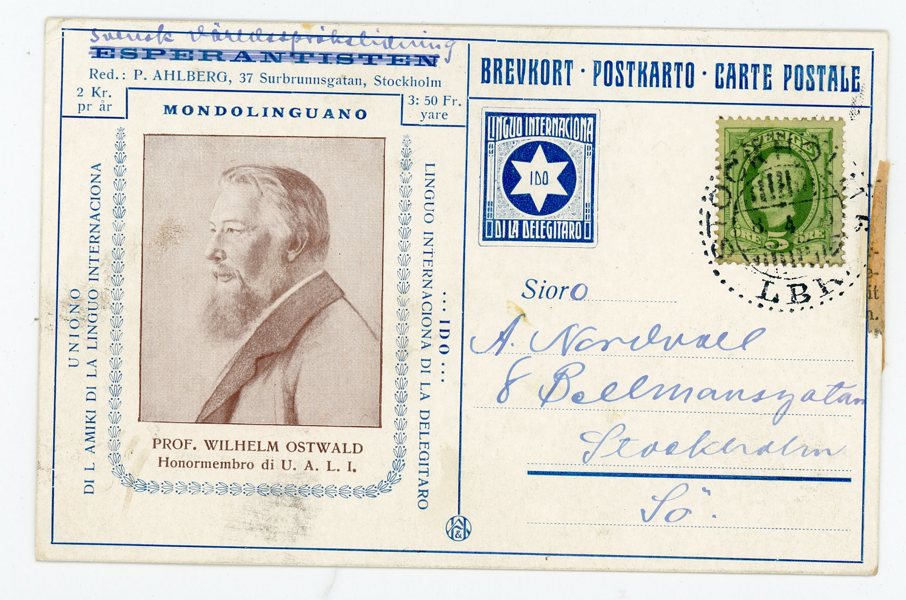 Svensk Världsspråkstidning
ESPERANTISTEN
Red.: P. AHLBERG, 37 Surbrunnsgatan, Stockholm
2 Kr.
pr år
MONDOLINGUANO
3: 50 Fr.
yare
UNIONO
DI L AMIKI DI LA LINGUO INTERNACIONA
PROF. WILHELM OSTWALD
Honormembro di U. A. L. I.
... IDO ...
LINGUO INTERNACIONA DI LA DELEGITARO
BREVKORT · POSTKARTO · CARTE POSTALE
LINGUO INTERNACIONA
IDO
DI LA DELEGITARO
ÖRE 5 ÖRE
LBR
Sioro
A. Nordvall
8 Bellmansgatan
Stockholm
Sö.